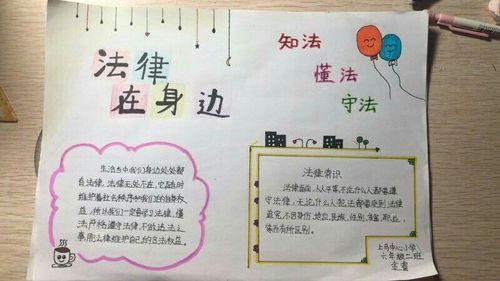 法律
在身边
知法
懂法
守法
生活当中我们身边处处都
有法律,法律无处不在,它随时
维护着社会秩序和我们的自身权
益,所以我们一定要学习法律,懂
法严格遵守法律,不做违法之
事用法律维护自己的合法权益。
法律常识
法律面前,人人平等,不论什么人都要遵
守法律,无论什么人犯法都要受到法律
追究,不因身份,地位,民族,性别,信官,职业,
等而有所区别。
上马中心小学
六年级二班